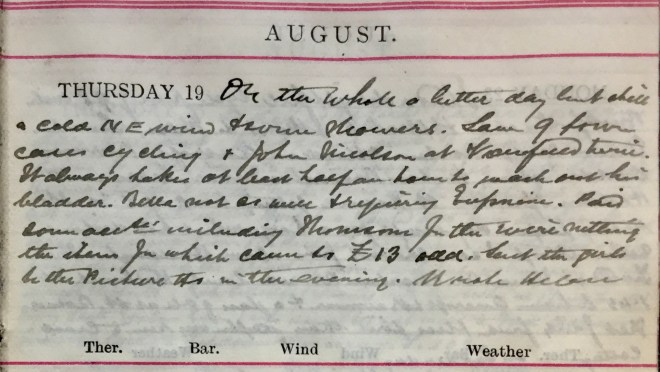 AUGUST.
THURSDAY 19 On the whole a better day but still
a cold NE wind & some showers. Saw 9 town
cases cycling & John Nicolson at twice.
It always takes at least half an hour to wash out his
bladder. Bella not so well & requiring Enpnine. Paid
some accts including Thomson for the
the item for which came to £13 odd. Sent the girls
to the Picture Ho in the evening. Wrote Helen
Ther. Bar. Wind Weather